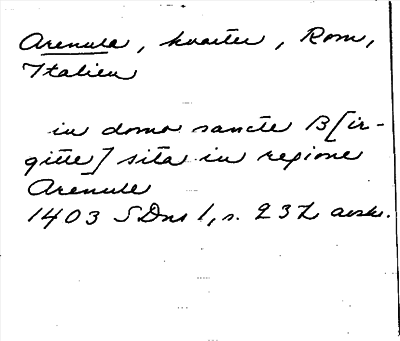 Arenula, kvarter, Rom,
Italien
in domo sancte B[ir-
gitte] sita in regione
Arenule
1403 SDns 1, s. 232 avskr.